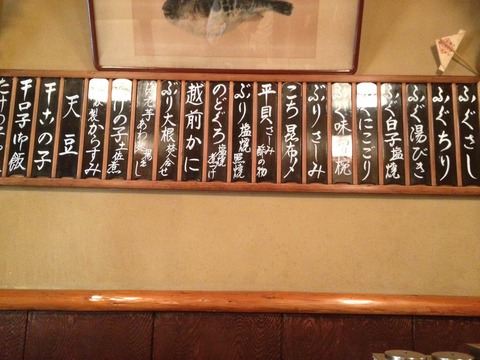 ふぐさし
ふぐちり
ふぐ湯びき
ふぐ白子 塩焼
にこごり
ふぐ味
椀
ぶりさしみ
こち昆布〆
平貝 さしみ 酢の物
ぶり 塩焼 照焼
のどぐろ 塩焼 煮つけ
越前かに
ぶり大根
の子 土佐煮
製からすみ
天豆
干口子御飯